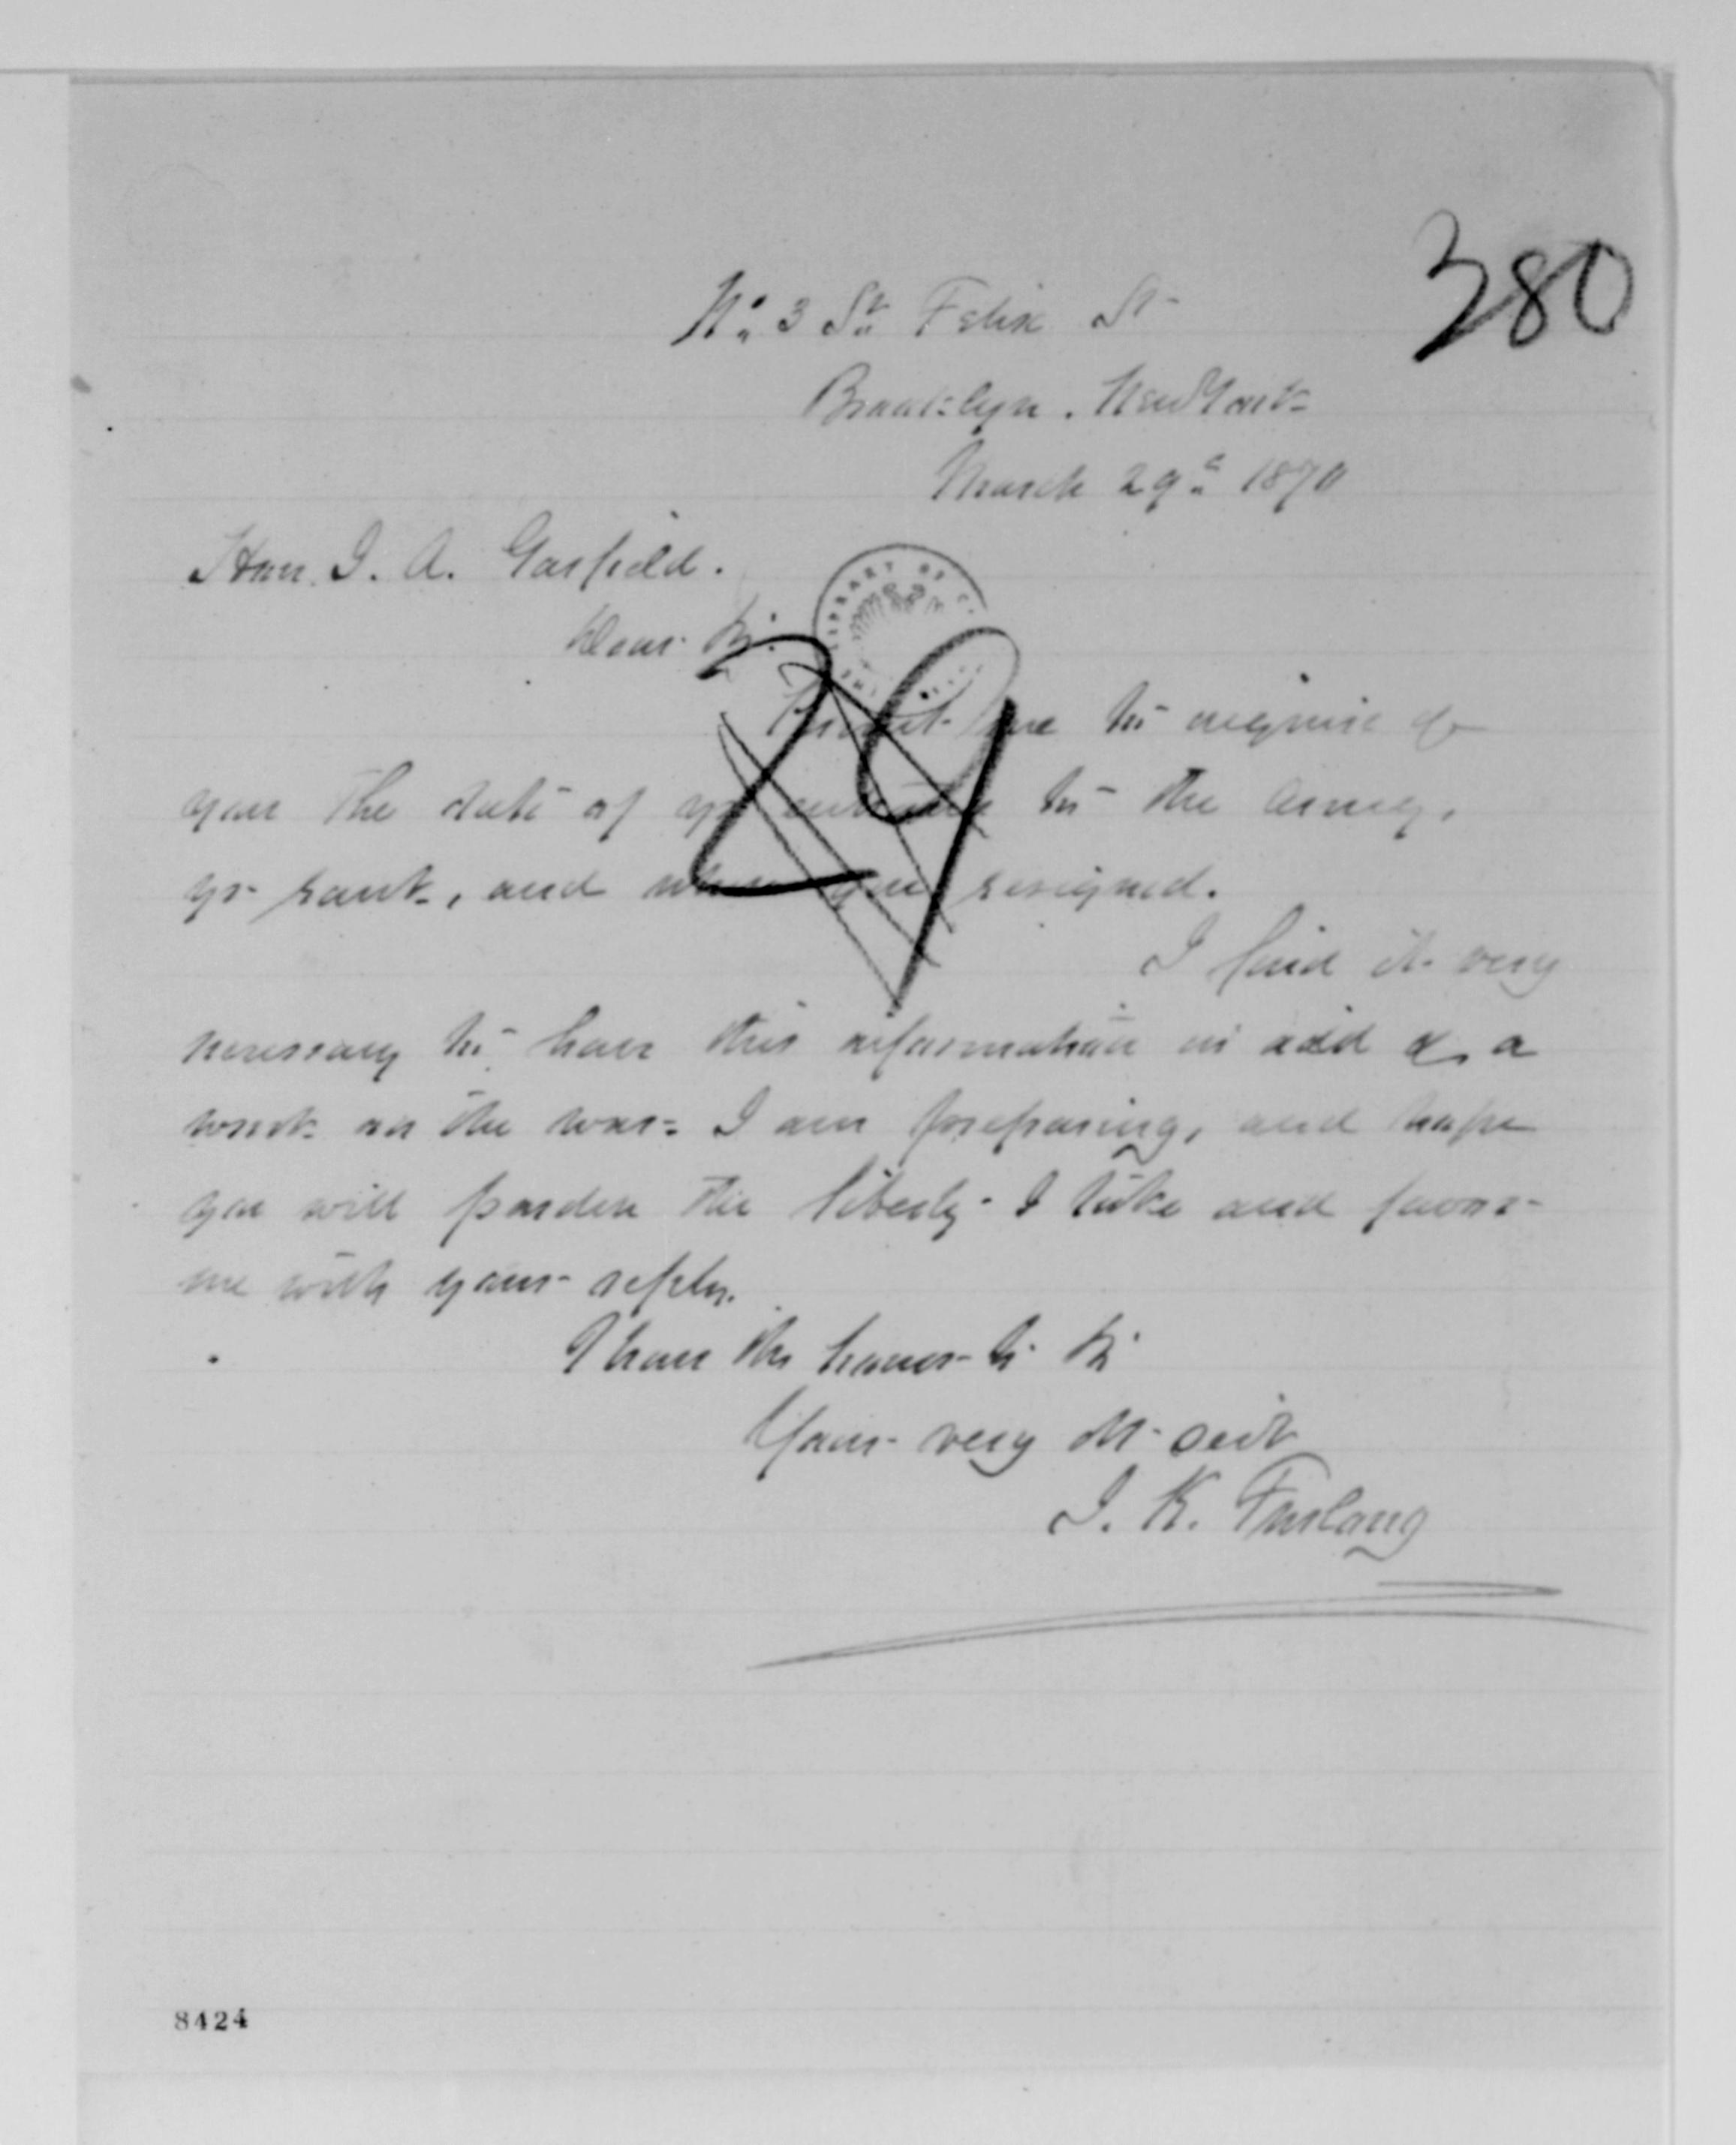 380
No. 3 St. Felix St
Brooklyn. New York
March 29th 1870
Hon. J. A. Garfield.
Dear Sir.
29
Permit me to enquire of
you the date of yr entrance to the army,
yr rank, and when you resigned.
I find it very
necessary to have this information in aid of a
work on the war I am preparing, and hope
you will pardon the liberty I take and favor
me with your reply.
I have the honor to be
Your very Obt. Servt
J. K. Furlong
8424